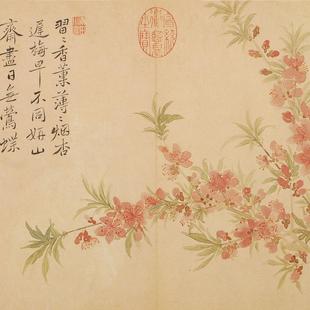 習〻香薰薄〻烟杏
遲梅早不同妍山
齋盡日無鶯蝶